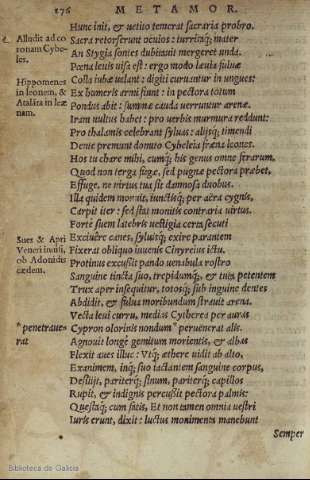 276 METAMOR.
Hunc init, & vetito temerat sacraria probro.
Alludit ad co
ronam Cybe-
les.
Sacra retorserunt oculos: turritaq́; mater
An Stygia sontes dubitauit mergeret unda.
Pœna leuis uisa est: ergo modo lauia fuluæ
Hippomenes
in leonem, &
Atalāta in leæ
nam.
Colla iubæ uelant: digiti curuantur in ungues:
Ex humeris armi fiunt: in pectora totum
Pondus abit: summæ cauda uerruntur arenæ.
Iram uultus habet: pro uerbis murmura reddunt:
Pro thalamis celebrant syluas: alijsq́; timendi
Dente premunt domito Cybeleia fræna leones.
Hos tu chare mihi, cumq́; his genus omne ferarum,
Quod non terga fugæ, sed pugnæ pectora præbet,
Effuge, ne uirtus tua sit damnosa duobus.
Illa quidem monuit, iunctisq́; per aëra cygnis,
Carpit iter: sed stat monitis contraria uirtus.
Forte suem latebris uestigia certa secuti
Sues & Apri
Veneri inuisi,
ob Adonidis
cædem.
Exciuêre canes, syluisq́; exire parantem
Fixerat obliquo iuuenis Cinyreius ictu.
Protinus excussit pando uenabula rostro
Sanguine tincta suo, trepidumq́;, & tuta petentem
Trux aper insequitur, totosq́; sub inguine dentes
Abdidit, & fulua moribundum strauit arena.
Vecta leui curru, medias Cytherea per auras
"penetraue-
rat
Cypron olorinis nondum "peruenerat alis.
Agnouit longè gemitum morientis, & albas
Flexit aues illuc: Vtq́; æthere uidit ab alto,
Exanimem, inq́; suo iactantem sanguine corpus,
Desiluit, pariterq́; sinum, pariterq́; capillos
Rupit, & indignis percussit pectora palmis:
Questaq́; cum fatis, Et non tamen omnia uestri
Iuris erunt, dixit: luctus monimenta manebunt
Semper
Biblioteca de Galicia